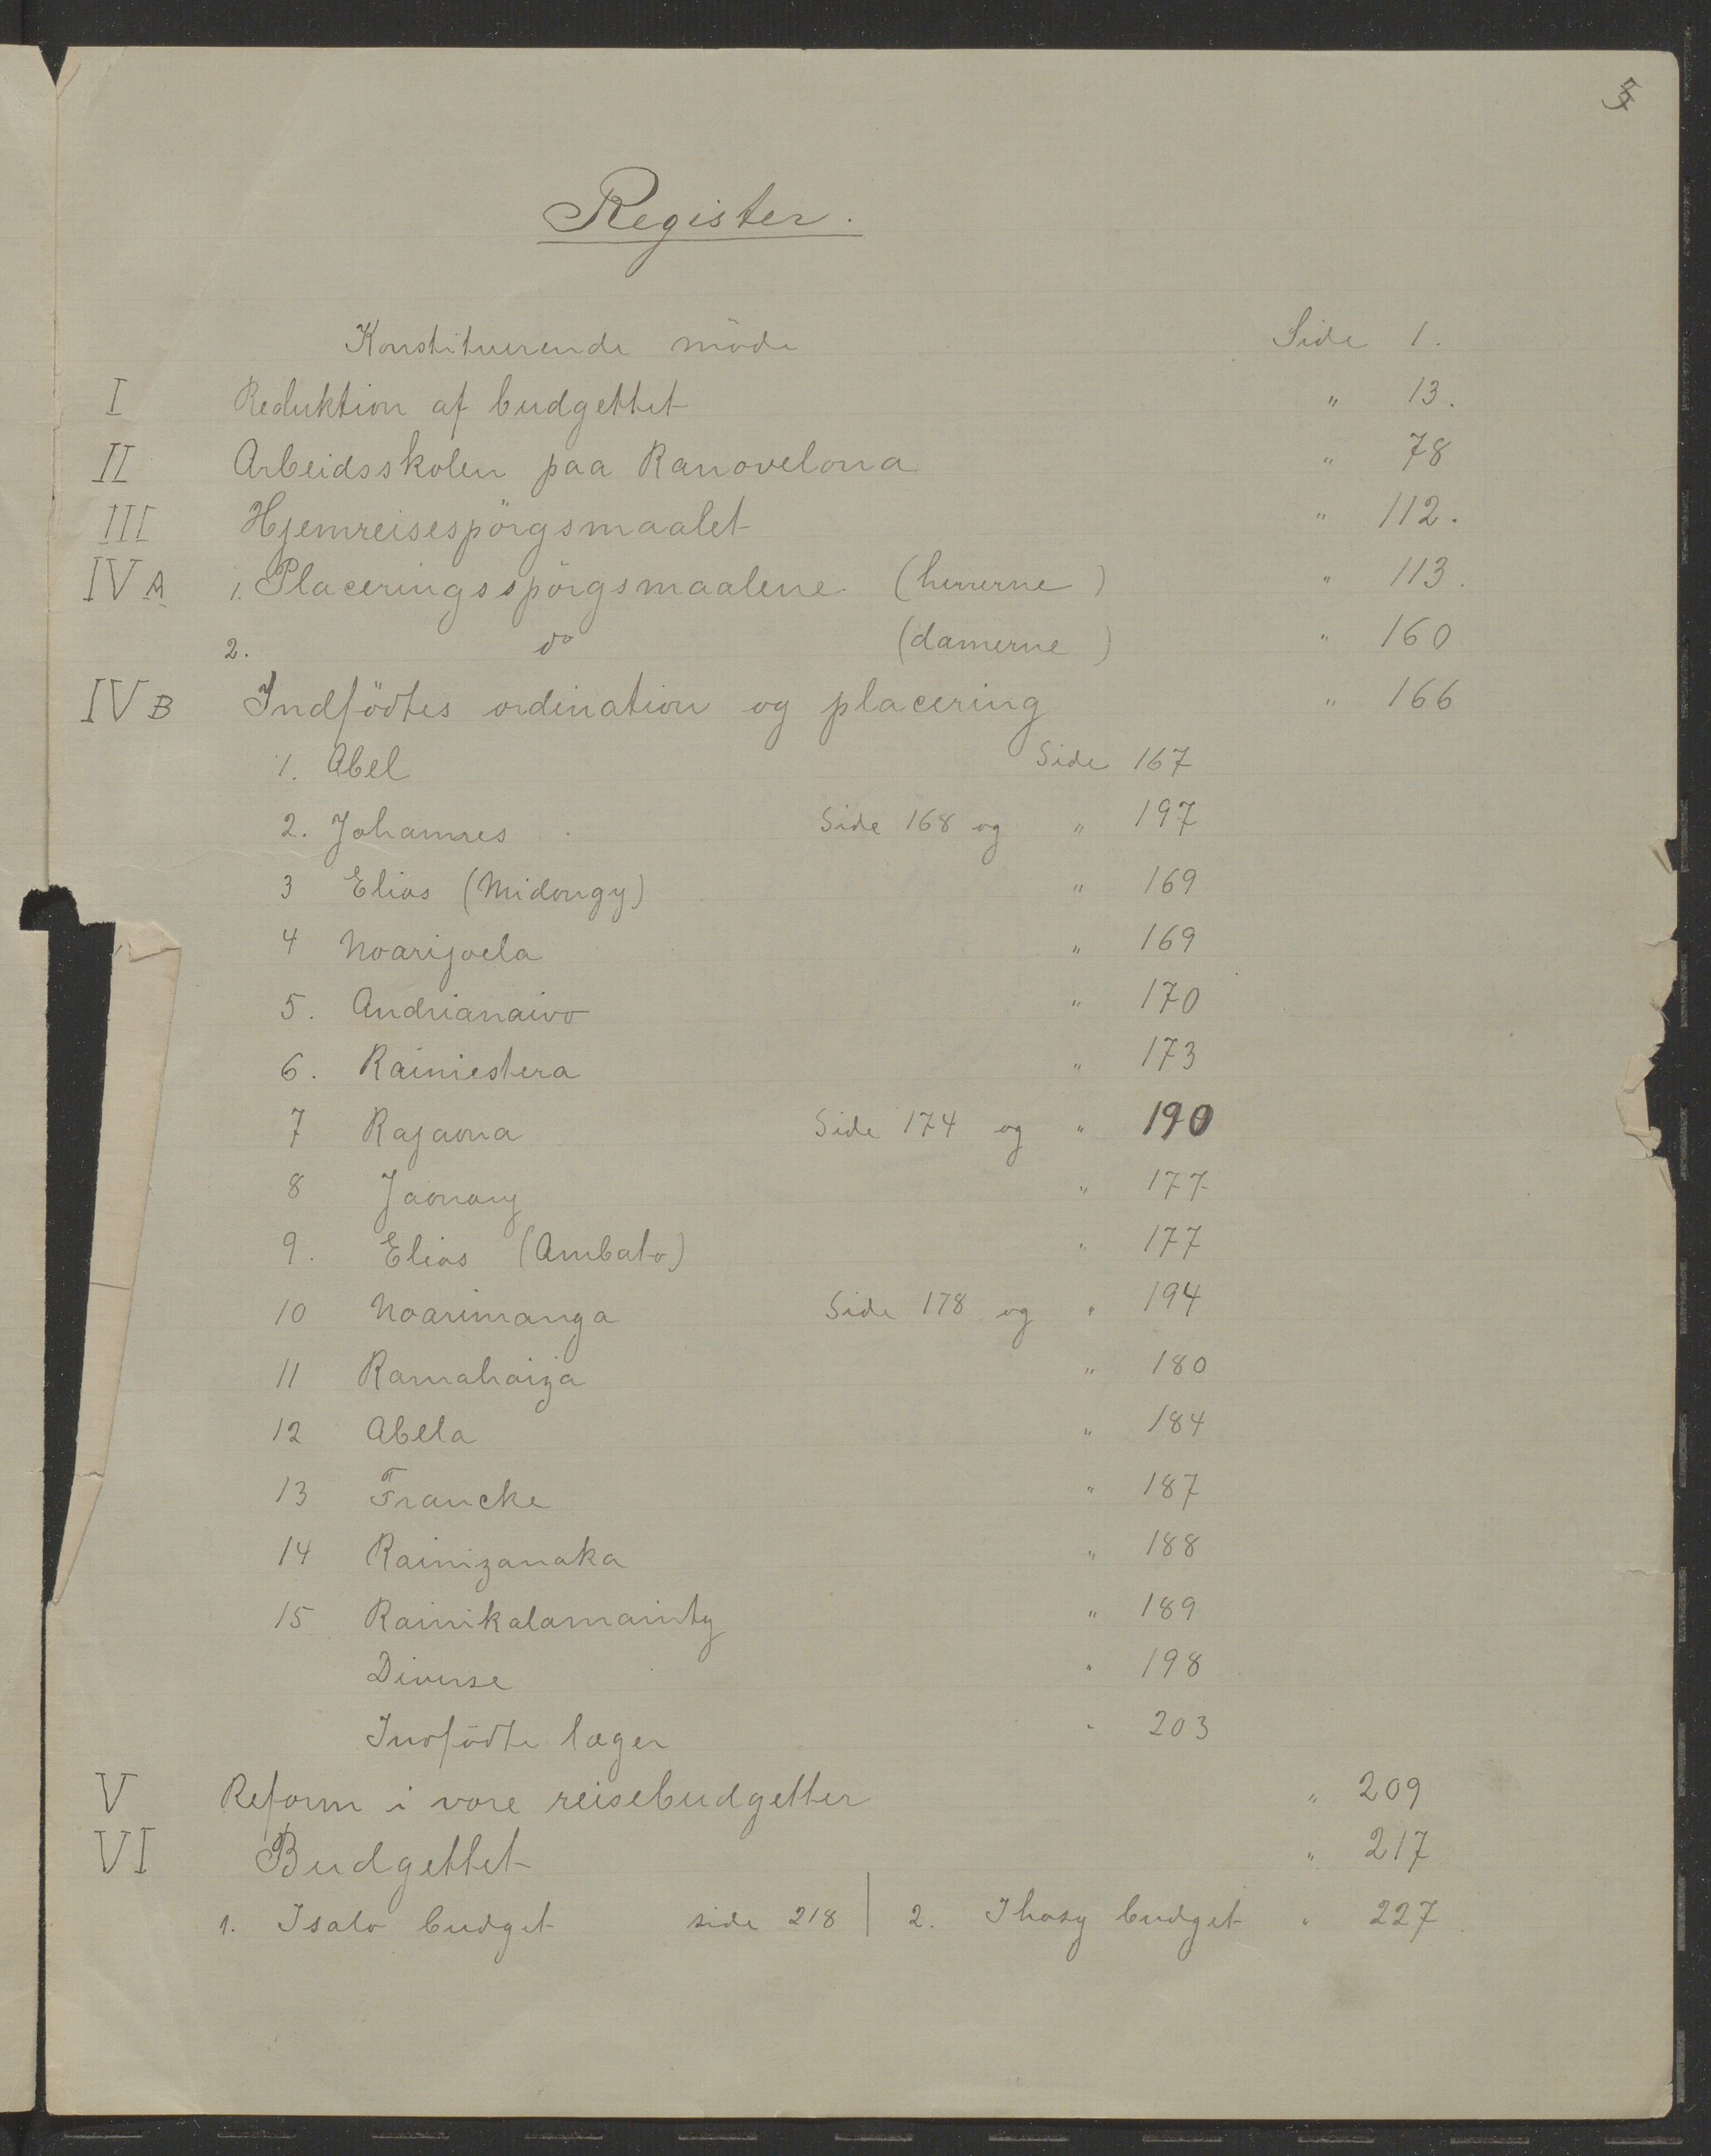 Register.
Konstituerende möde Side 1.
I Reduktion af budgettet " 13.
II Arbeidsskolen paa Ranovelona " 78
III Hjemreisespörgsmaalet " 112.
IV A 1. Placeringsspörgsmaalene (herrerne) " 113.
2. do (damerne) " 160
IV B Indfödtes ordination og placering " 166
1. Abel Side 167
2. Johannes Side 168 og " 197
3 Elias (Midongy) " 169
4 Noarijoela " 169
5. Andrianaivo " 170
6. Rainiestera " 173
7 Rajaona Side 174 og " 190
8 Jaonary " 177
9. Elias (Ambato) " 177
10 Noarimanga Side 178 og " 194
11 Ramahaiza " 180
12 Abela " 184
13 Francke " 187
14 Rainizanaka " 188
15 Rainikalamainty " 189
Diverse " 198
Indfödte læger " 203
V Reform i vore reisebudgetter " 209
VI Budgettet " 217
1. Isalo budget side 218 | 2. Ihosy budget " 227